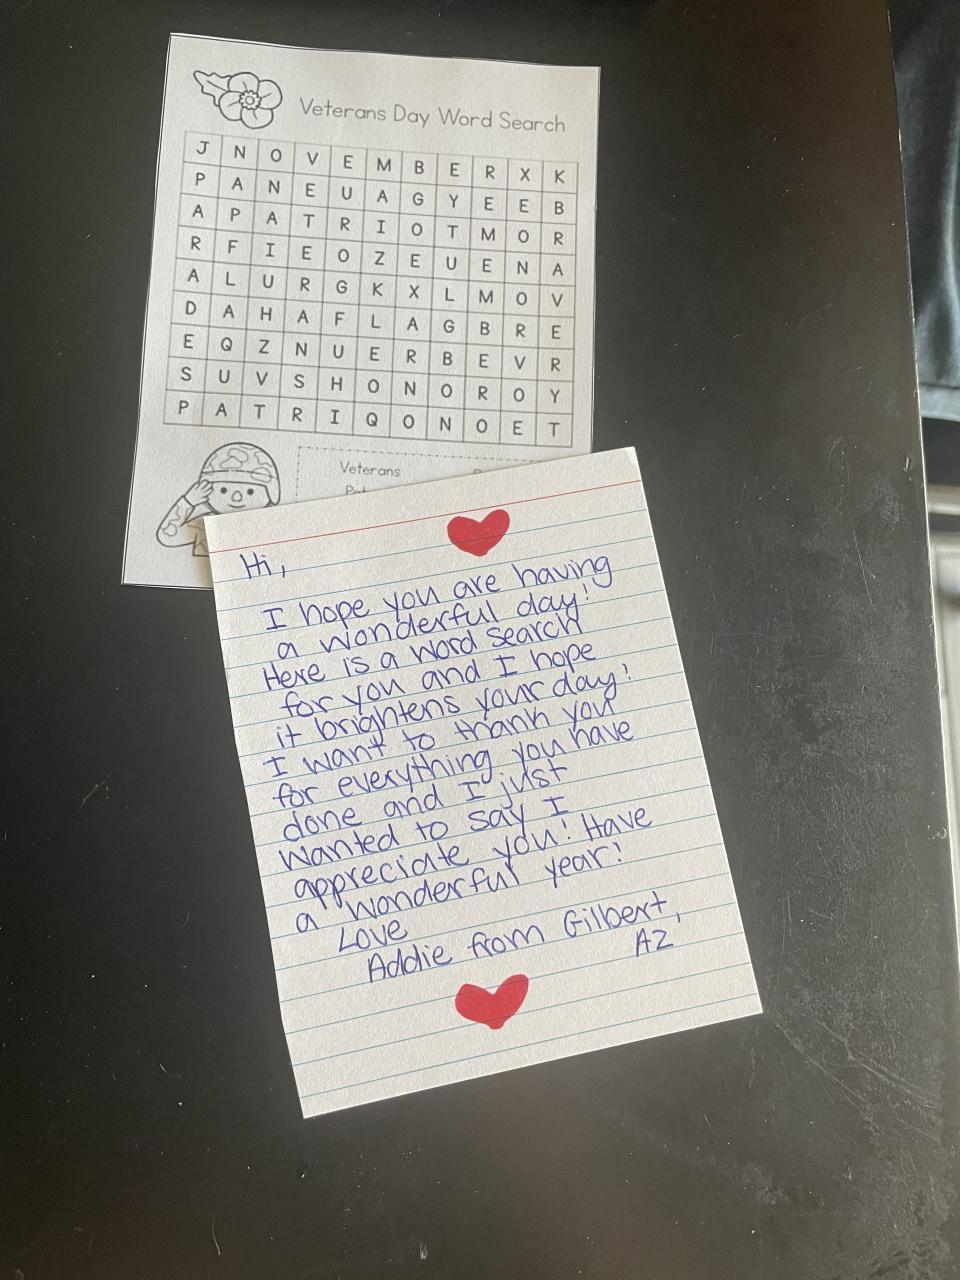 Veterans Day Word Search
J N O V E M B E R X K
P A N E U A G Y E E B
A P A T R I O T M O R
R F I E O Z E U E N A
A L U R G K X L M O V
D A H A F L A G B R E
E Q Z N U E R B E V R
S U V S H O N O R O Y
P A T R I Q O N O E T
Veterans
Hi,
I hope you are having
a wonderful day!
Here is a word search
for you and I hope
it brightens your day!
I want to thank you
for everything you have
done and I just
wanted to say I
appreciate you! Have
a wonderful year!
Love
Addie from Gilbert,
AZ